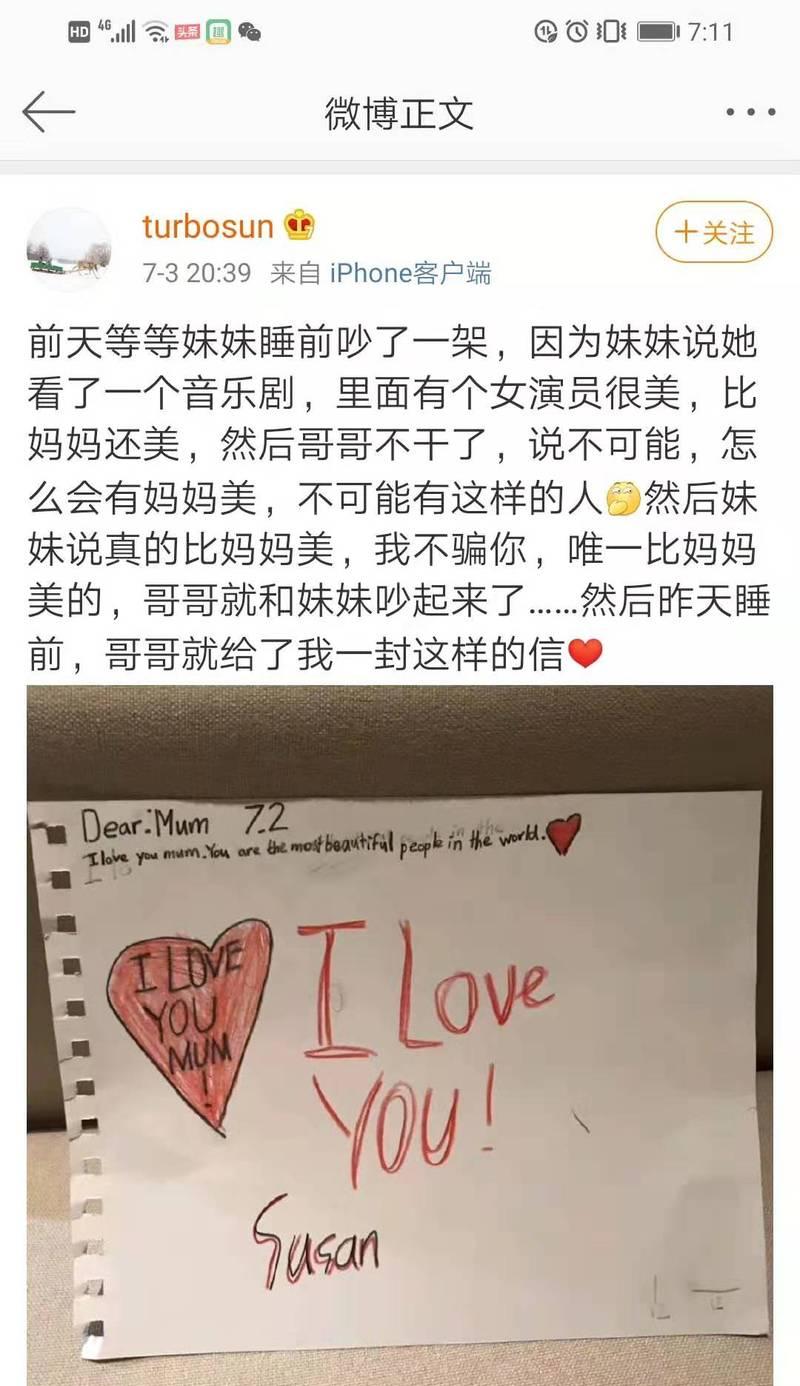 HD 4G 头条 趣 7:11
微博正文
turbosun
+关注
7-3 20:39 来自 iPhone客户端
前天等等妹妹睡前吵了一架，因为妹妹说她
看了一个音乐剧，里面有个女演员很美，比
妈妈还美，然后哥哥不干了，说不可能，怎
么会有妈妈美，不可能有这样的人🤔然后妹
妹说真的比妈妈美，我不骗你，唯一比妈妈
美的，哥哥就和妹妹吵起来了……然后昨天睡
前，哥哥就给了我一封这样的信❤️
Dear:Mum 7.2
I love you mum.You are the most beautiful people in the world.
I LOVE
YOU
MUM
!
I Love
YOU!
Susan